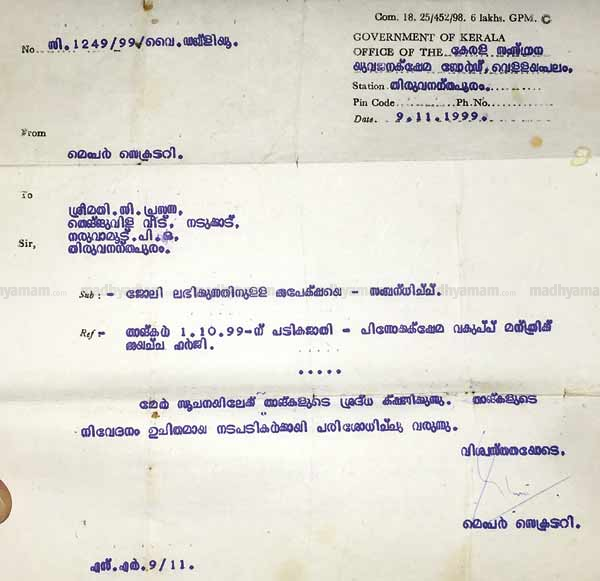 Com. 18. 25/452/98. 6 lakhs. GPM. ©
GOVERNMENT OF KERALA
No. സി.1249/99/വൈ.ഡബ്ളിയു.
OFFICE OF THE കേരള സംസ്ഥാന
യുവജനക്ഷേമ ബോർഡ്, വെള്ളയമ്പലം.
Station തിരുവനന്തപുരം.
Pin Code ............ Ph.No. ............
Date. 9.11.1999.
From
മെമ്പർ സെക്രട്ടറി.
To
ശ്രീമതി.സി.പ്രസന്ന,
തെങ്ങുവിള വീട്, നടുക്കാട്,
നരുവാമൂട്.പി.ഒ,
Sir,
തിരുവനന്തപുരം.
Sub : - ജോലി ലഭിക്കുന്നതിനുള്ള അപേക്ഷയെ - സംബന്ധിച്ച്.
Ref :- താങ്കൾ 1.10.99-ന് പട്ടികജാതി - പിന്നോക്കക്ഷേമ വകുപ്പ് മന്ത്രിക്ക്
അയച്ച ഹർജി.
.....
മേൽ സൂചനയിലേക്ക് താങ്കളുടെ ശ്രദ്ധ ക്ഷണിക്കുന്നു. താങ്കളുടെ
നിവേദനം ഉചിതമായ നടപടികൾക്കായി പരിശോധിച്ചു വരുന്നു.
വിശ്വസ്തതയോടെ,
മെമ്പർ സെക്രട്ടറി.
എസ്.എർ.9/11.
madhyamam.com